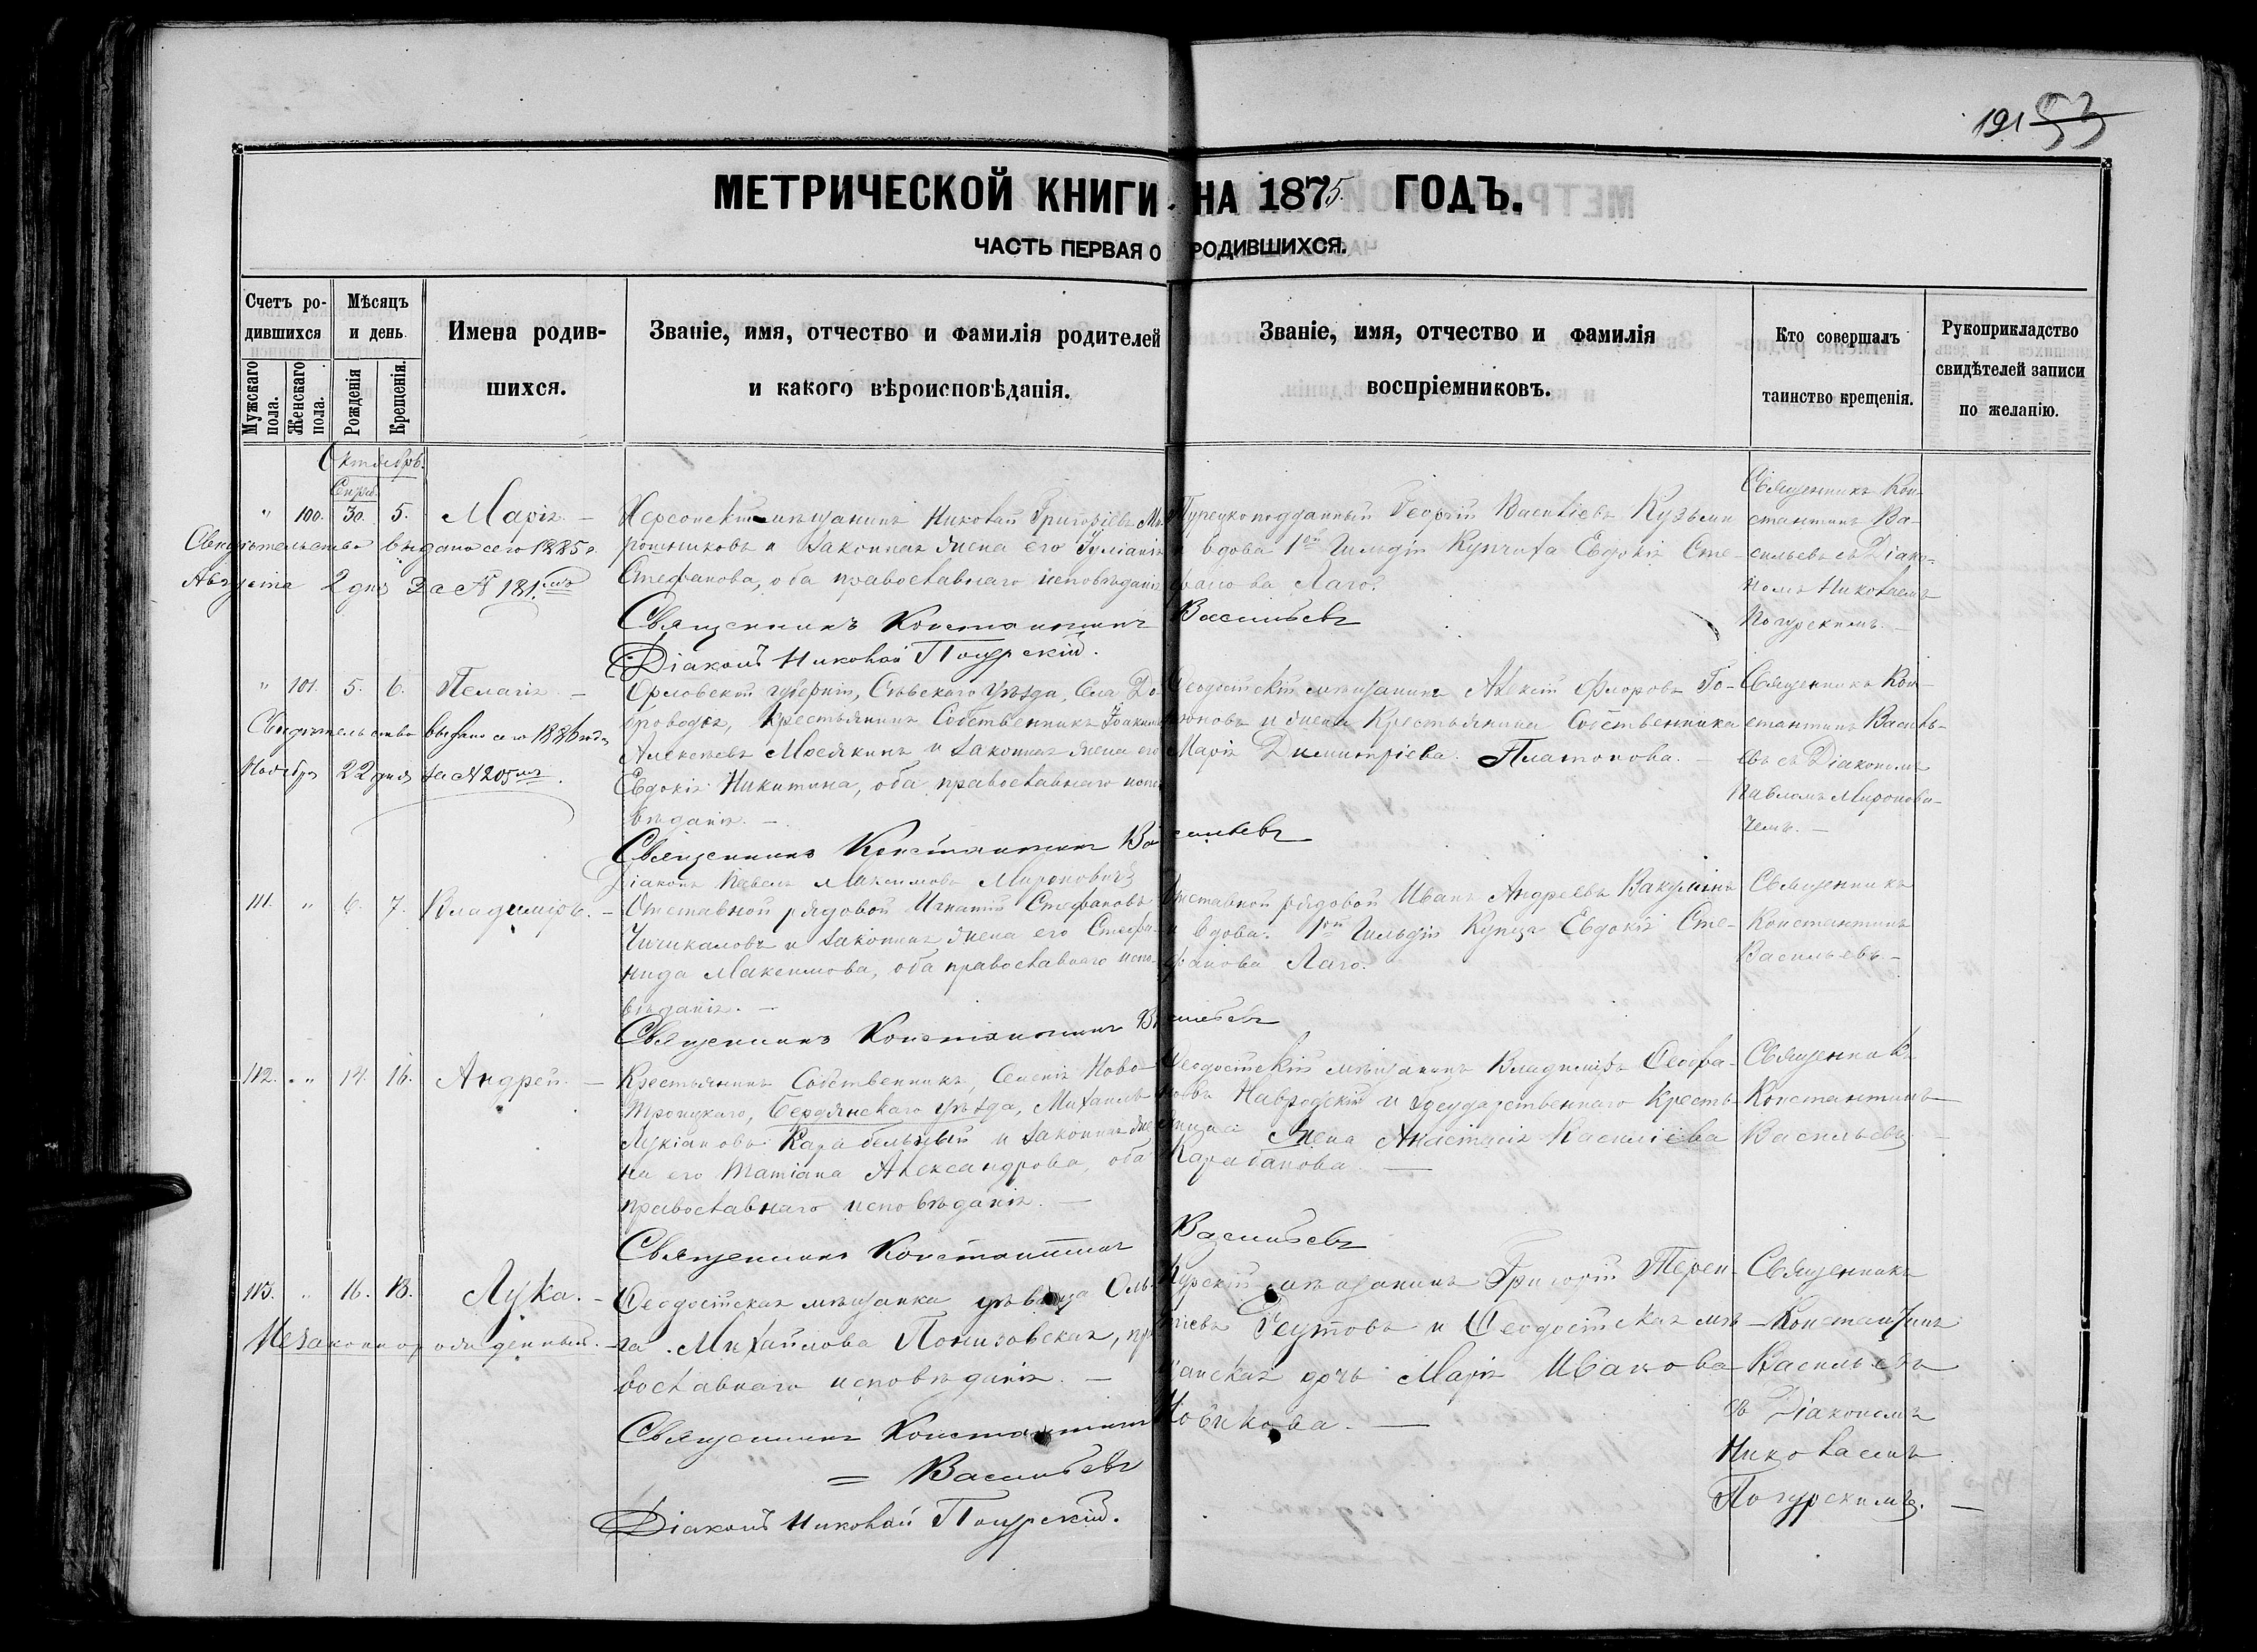 191 53
МЕТРИЧЕСКОЙ КНИГИ НА 1875 ГОДЪ.
ЧАСТЬ ПЕРВАЯ О РОДИВШИХСЯ.
Счетъ ро-
дившихся
Мужскаго пола.
Женскаго пола.
Мѣсяцъ
и день
Рожденія
Крещенія.
Имена родив-
шихся.
Званіе, имя, отчество и фамилія родителей
и какого вѣроисповѣданія.
Званіе, имя, отчество и фамилія
воспріемниковъ.
Кто совершалъ
таинство крещенія.
Рукоприкладство
свидѣтелей записи
по желанію.
Октябрь.
" 100. 30. 5. Марія. —
Свидѣтельство выдано сего 1885 г.
Августа 2 дня за № 181.мъ
Херсонскій мѣщанинъ Николай Григоріевъ Мѣ-
рошниковъ и законная жена его Іуліанія
Стефанова, оба православнаго исповѣданія
Священникъ Константинъ Васильевъ
Діаконъ Николай Погурскій.
Турецкоподданный Георгій Васильевъ Кузьмин
и вдова 1ой Гильдіи Купчиха Евдокія Сте-
фанова Лаго.
Священникъ Кон-
стантинъ Ва-
сильевъ съ Діако-
номъ Николаемъ
Погурскимъ. —
" 101. 5. 6. Пелагія. —
Свидѣтельство выдано сего 1886 года
Ноября 22 дня за № 205мъ.
Орловской губерніи, Сѣвскаго Уѣзда, Села До-
броводья, Крестьянинъ Собственникъ Іоакимъ
Алексѣевъ Мосякинъ и законная жена его
Евдокія Никитина, оба православнаго испо-
вѣданія. —
Священникъ Константинъ Васильевъ
Діаконъ Павелъ Максимовъ Мироновичъ
Ѳеодосійскій мѣщанинъ Алексій Флоровъ Го-
рюновъ и жена Крестьянина Собственника
Марія Димитріева Платонова. —
Священникъ Кон-
стантинъ Василь-
евъ съ Діакономъ
Павломъ Миронови-
чемъ. —
111. " 6. 7. Владиміръ. —
Отставной рядовой Игнатій Стефановъ
Чичикаловъ и законная жена его Стефа-
нида Максимова, оба православнаго испо-
вѣданія. —
Священникъ Константинъ Васильевъ
Отставной рядовой Иванъ Андреевъ Вакулинъ
и вдова 1ой Гильдіи Купца Евдокія Сте-
фанова Лаго.
Священникъ
Константинъ
Васильевъ. —
112. " 14. 16. Андрей. —
Крестьянинъ Собственникъ, Селенія Ново-
Троицкаго, Бердянскаго уѣзда, Михаилъ
Лукіановъ Карабельный и законная же-
на его Татіана Александрова, оба
православнаго исповѣданія. —
Священникъ Константинъ Васильевъ
Ѳеодосійскій мѣщанинъ Владиміръ Ѳеофа-
новъ Навродскій и государственнаго кресть-
янина жена Анастасія Василіева
Карабанова. —
Священникъ
Константинъ
Васильевъ —
113. " 16. 18. Лука. —
Незаконнорожденный. —
Ѳеодосійская мѣщанка дѣвица Оль-
га Михайлова Понизовская, пра-
вославнаго исповѣданія. —
Священникъ Константинъ
= Васильевъ
Діаконъ Николай Погурскій.
Курскій мѣщанинъ Григорій Терен-
тіевъ Реутовъ и Ѳеодосійская мѣ-
щанская дочь Марія Иванова
Новикова. —
Священникъ
Константинъ
Васильевъ
съ Діакономъ
Николаемъ
Погурскимъ. —